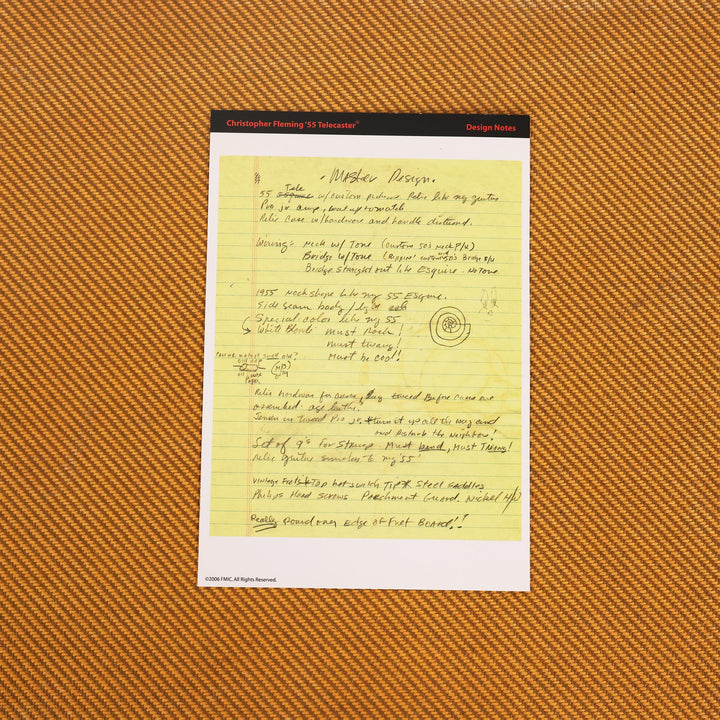 Christopher Fleming '55 Telecaster® Design Notes
. Master Design.
Tele
55 Esquire w/custom pickups Relic like my guitar
Pro jr amp, beat up to match
Relic case w/hardware and handle distressed.
Wiring: Neck w/ Tone (custom 50's Neck P/U)
Bridge w/Tone ( custom 50's Bridge P/U
Bridge straight out like Esquire. No tone.
1955 Neck shape like my 55 Esquire.
Side seam body / light
Special color like my 55
White Blonde Must Rock!
Must twang!
Must be cool!
old?
old cap
oil
Paper
Relic hardware for case, tweed Before cases are
assembled. age leather.
Jensen in tweed Pro jr. turn it up all the way and
and Disturb the Neighbors!
Set of 9's For Strings Must bend, Must TWANG!
relic guitar similar to my '55'
Vintage Frets Top hat switch Tip Steel Saddles
Philips Head screws Parchment Guard. Nickel H/W
Really Round over edge of Fret BOARD!!
©2006 FMIC. All Rights Reserved.